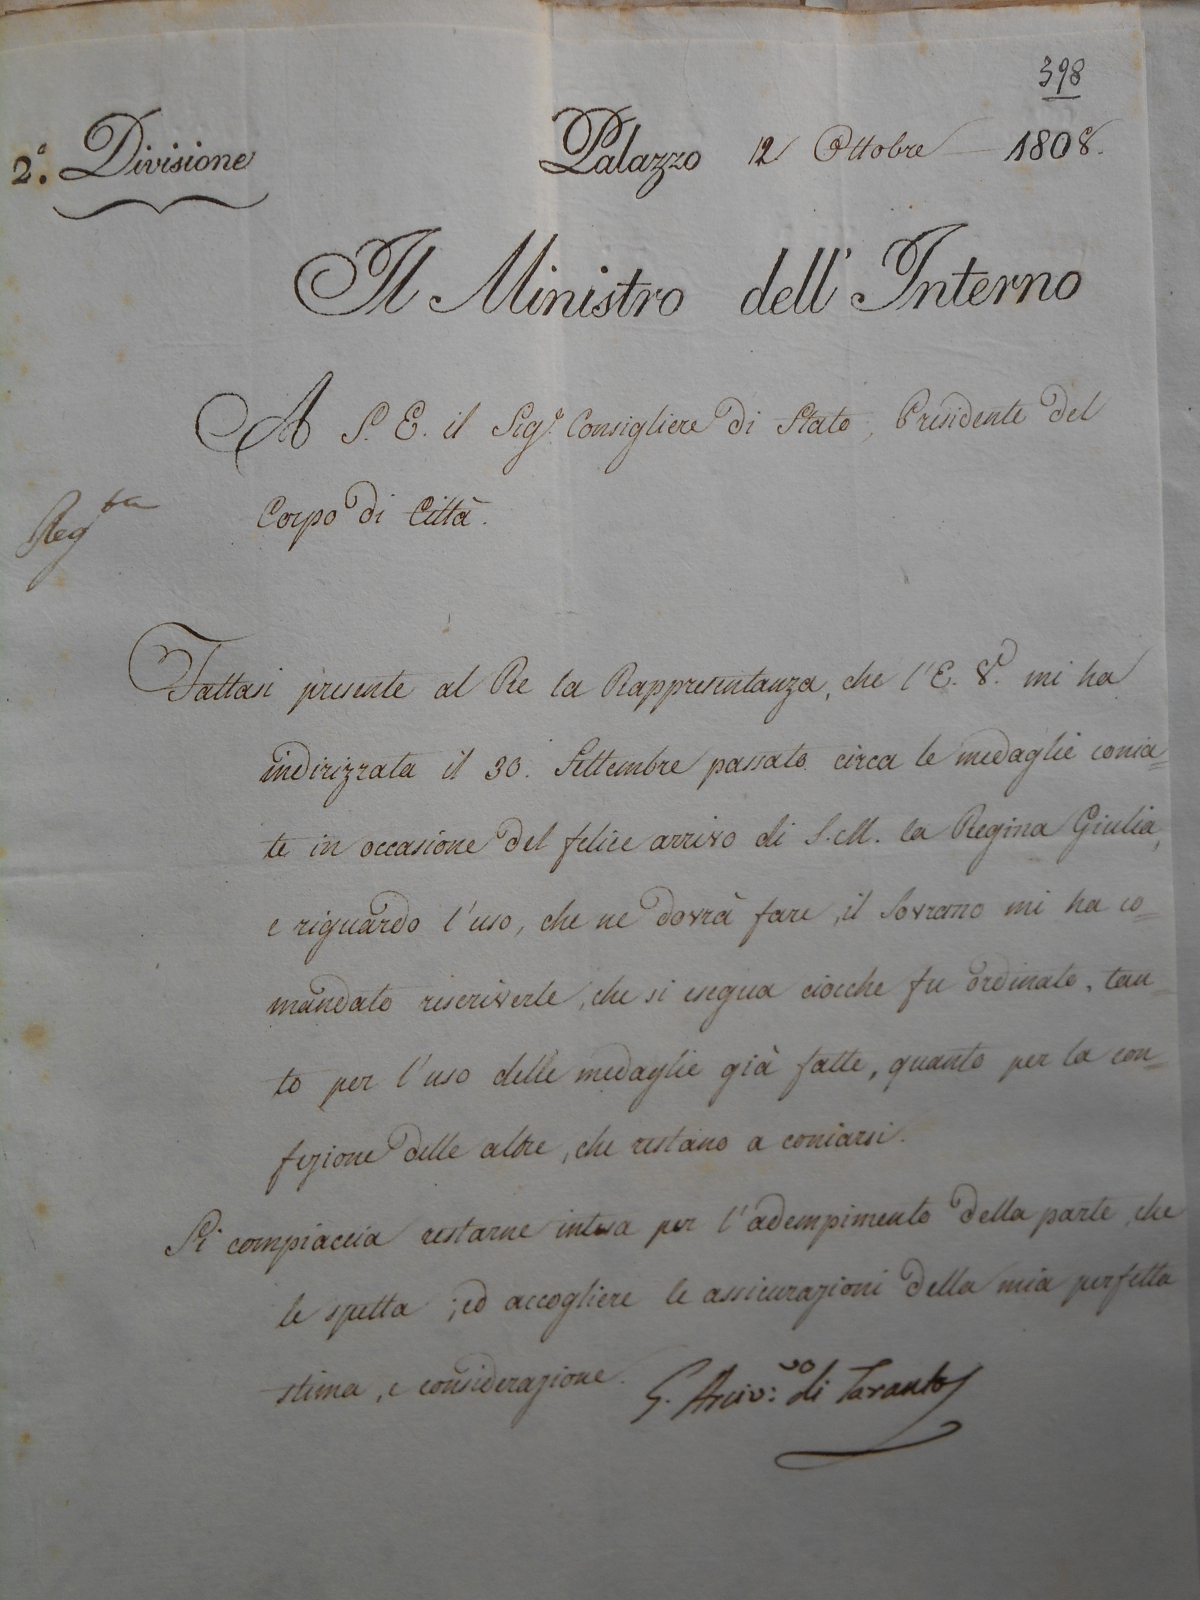 398
2.ª Divisione
Palazzo 12 Ottobre 1808.
Il Ministro dell' Interno
A S. E. il Sig.r Consigliere di Stato, Presidente del
Corpo di Città.
Reg.ta
Fattasi presente al Re la Rappresentanza, che l'E. V. mi ha
indirizzata il 30. Settembre passato circa le medaglie conia=
te in occasione del felice arrivo di S. M. la Regina Giulia,
e riguardo l'uso, che ne dovrà fare, il Sovrano mi ha co=
mandato riscriverle, che si esegua ciocche fu ordinato, tan=
to per l'uso delle medaglie già fatte, quanto per la con=
fezione delle altre, che restano a coniarsi.
Si compiaccia restarne intesa per l'adempimento della parte, che
le spetta; ed accogliere le assicurazioni della mia perfetta
stima, e considerazione.
G. Arciv:vo di Taranto